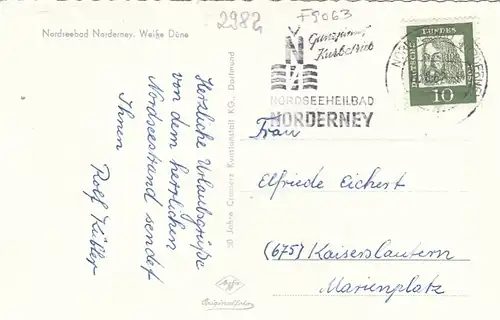 Nordseebad Norderney. Weiße Düne
2982
F9063
Ganzjährig
Kurbetrieb
N
NORDSEEHEILBAD
NORDERNEY
DEUTSCHE BUNDESPOST
10
Herzliche Urlaubsgrüße
von dem herrlichen
Nordseestrand sendet
Ihnen
Rolf Kübler
50 Jahre Cramers Kunstanstalt KG., Dortmund
Agfa
Frau
Elfriede Eichert
(675) Kaiserslautern
Marienplatz